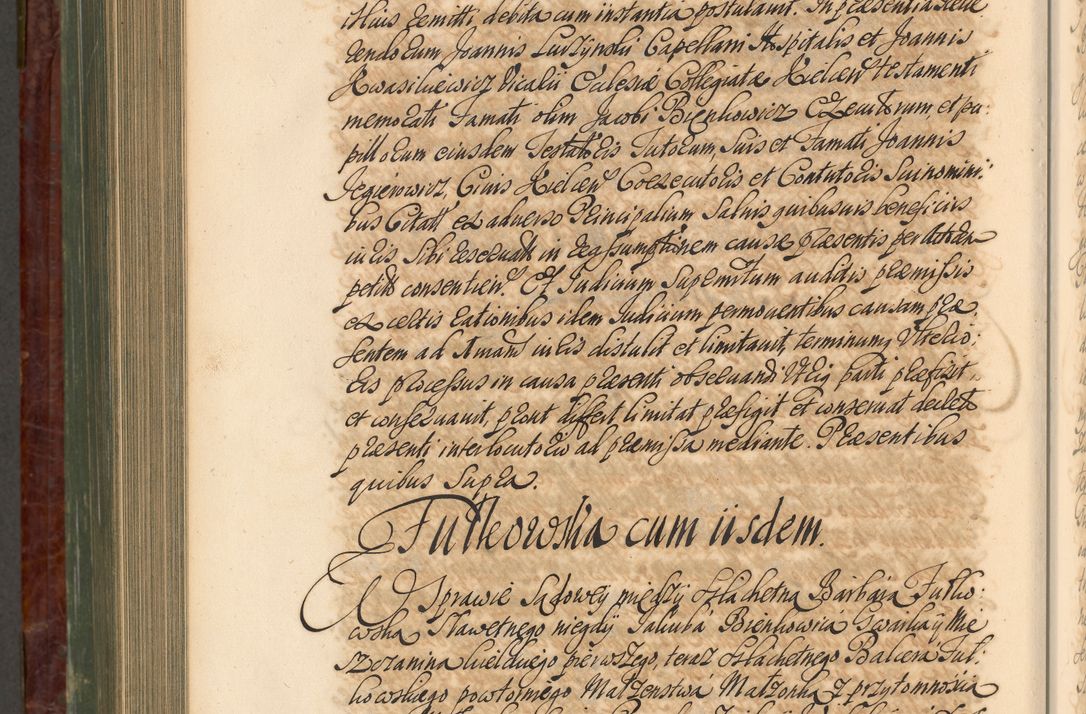 illius remitti debita cum instantia postulavit. In praesentia Reve
rendorum Joannis Luszynski Capellani Hospitalis et Joannis
Kwasniewicz Vicarii Ecclesiae Collegiatae Kielcen testamenti
memorati Famati olim Jacobi Bienkowicz Executorum, et pu:
pillorum eiusdem Testatoris Tutorum, Suis et Famati Joannis
Jegierowicz, Civis Kielcen Coexecutoris et Contutoris Sui nomini:
bus Citatt ex adverso Principalium Salvis quibusvis beneficiis
iuris Sibi reservatis in reassumptionem causae praesentis per Actorea
petitt consentien. Et Judicium Supremitum auditis praemissis
ex certis rationibus idem Judicium permoventibus causam prae
sentem ad Amand iuris distulit et limitavit, terminumq Ulterio:
ris processus in causa praesenti observandi Utriq parti praefixit
et conservavit, prout differt limitat praefigit et conservat decreto
praesenti interlocutorio ad praemissa mediante. Praesentibus
quibus Supra.
Futkowska cum iisdem.
W Sprawie Sądowey między Szlachetną Barbárą Futko:
wską Sławetnego niegdy Jakuba Bienkowicá Twarka y Mie
szczanina kielckiego pierwszego, teraz Szláchetnego Balcerá Fut:
kowskiego powtornego Małżenstwá Małżonką z przytomnoscią